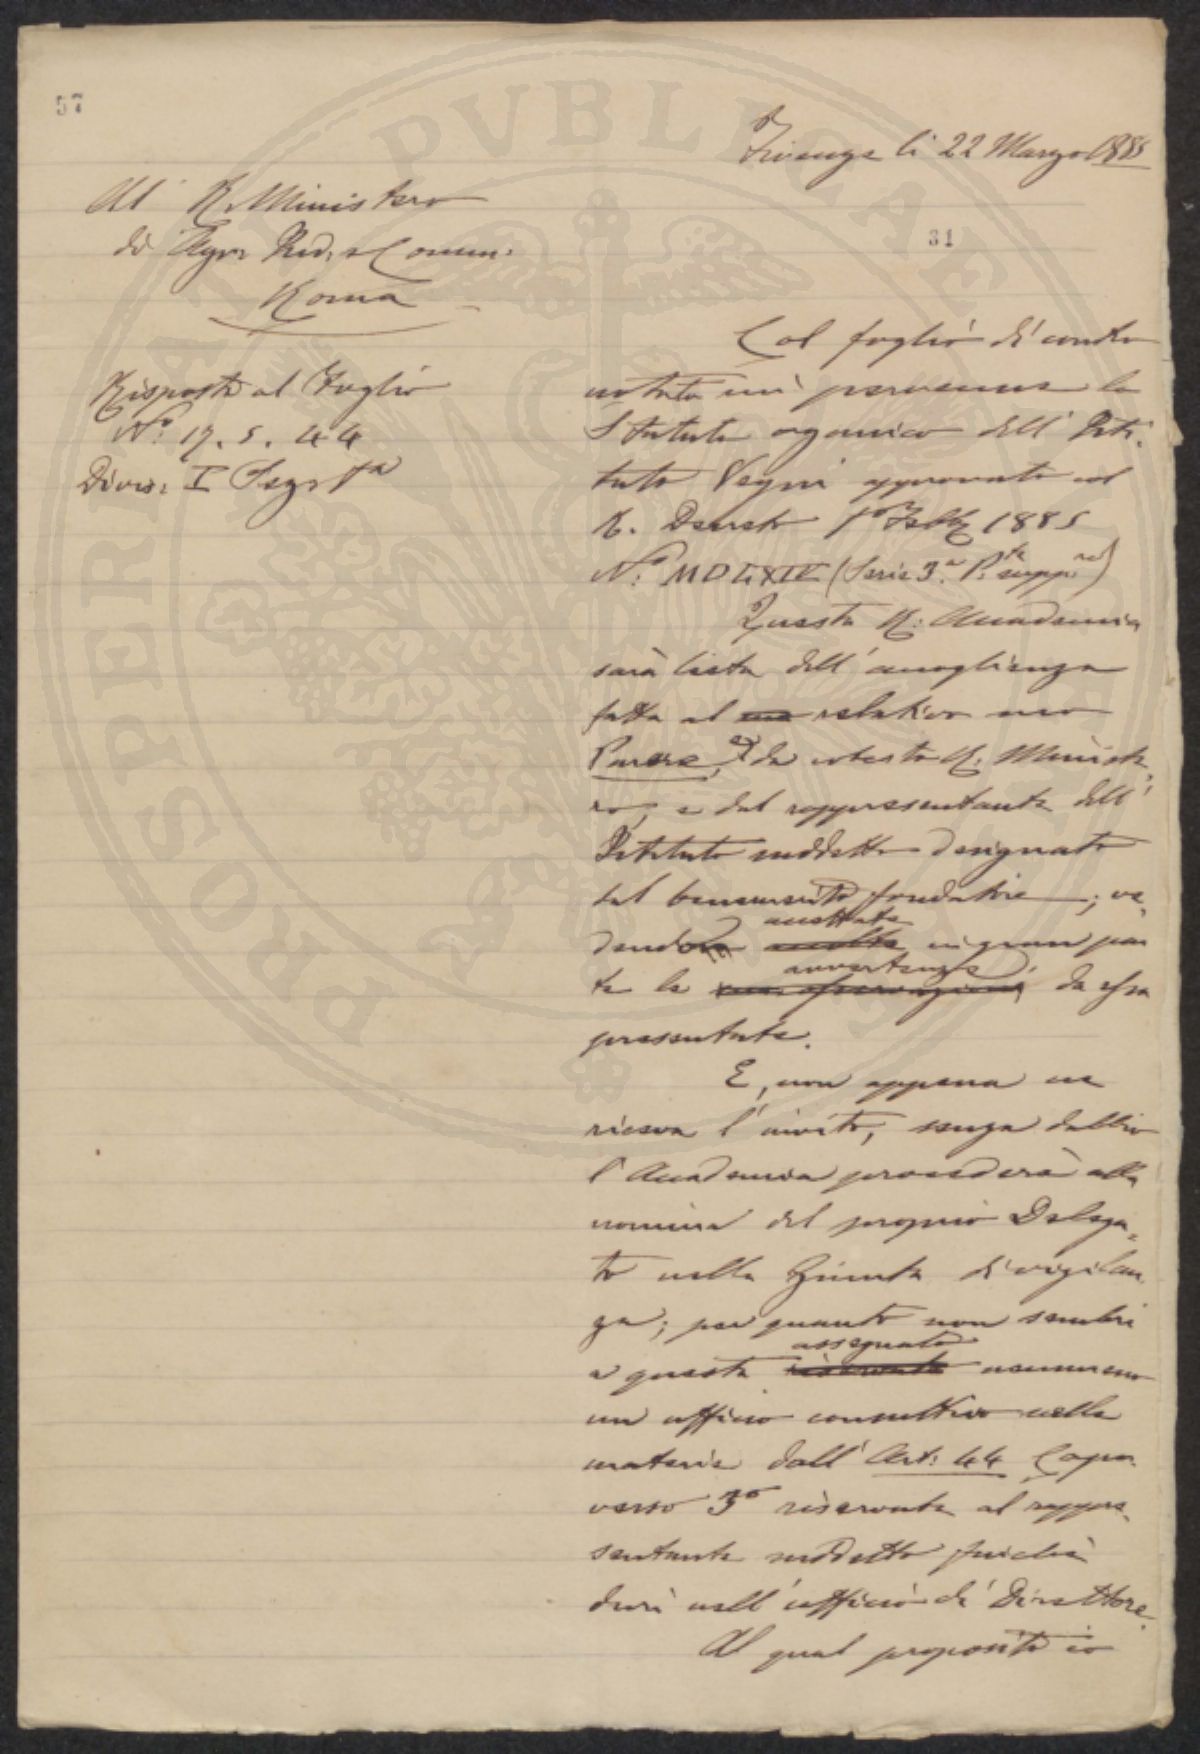 57
Firenze li 22 Marzo 1885
Al R. Ministero
di Agr. Ind. e Comm.
Roma
31
Risposta al Foglio
N.° 17. 5. 44
Divis. I Segr. 1a
Col foglio di contro
notato mi pervenne lo
Statuto organico dell' Isti-
tuto Vegni approvato col
R. Decreto 1° Febb. 1885
N.° (Serie 3.a P.te supp.re)
Questa R. Accademia
sarà lieta dell' accoglienza
fatta al relativo suo
Parere, e da cotesto R. Ministe-
ro, e dal rappresentante dell'
Istituto suddetto designato
dal benemerito fondatore; ve-
accettate
dendo accolte in gran par
avvertenze
te le osservazioni da essa
presentate.
E, non appena ne
riceva l' invito, senza dubbio
l' Accademia procederà alla
nomina del proprio Delega-
to nella Giunta di vigilan-
za; per quanto non sembri
assegnato
a questa riservato nemmeno
un ufficio consultivo nella
materia dall' Art. 44 Capo-
verso 3° riservata al rappre-
sentante suddetto finchè
duri nell' ufficio di Direttore.
Al qual proposito io
PROSPERITATI PVBLICAE